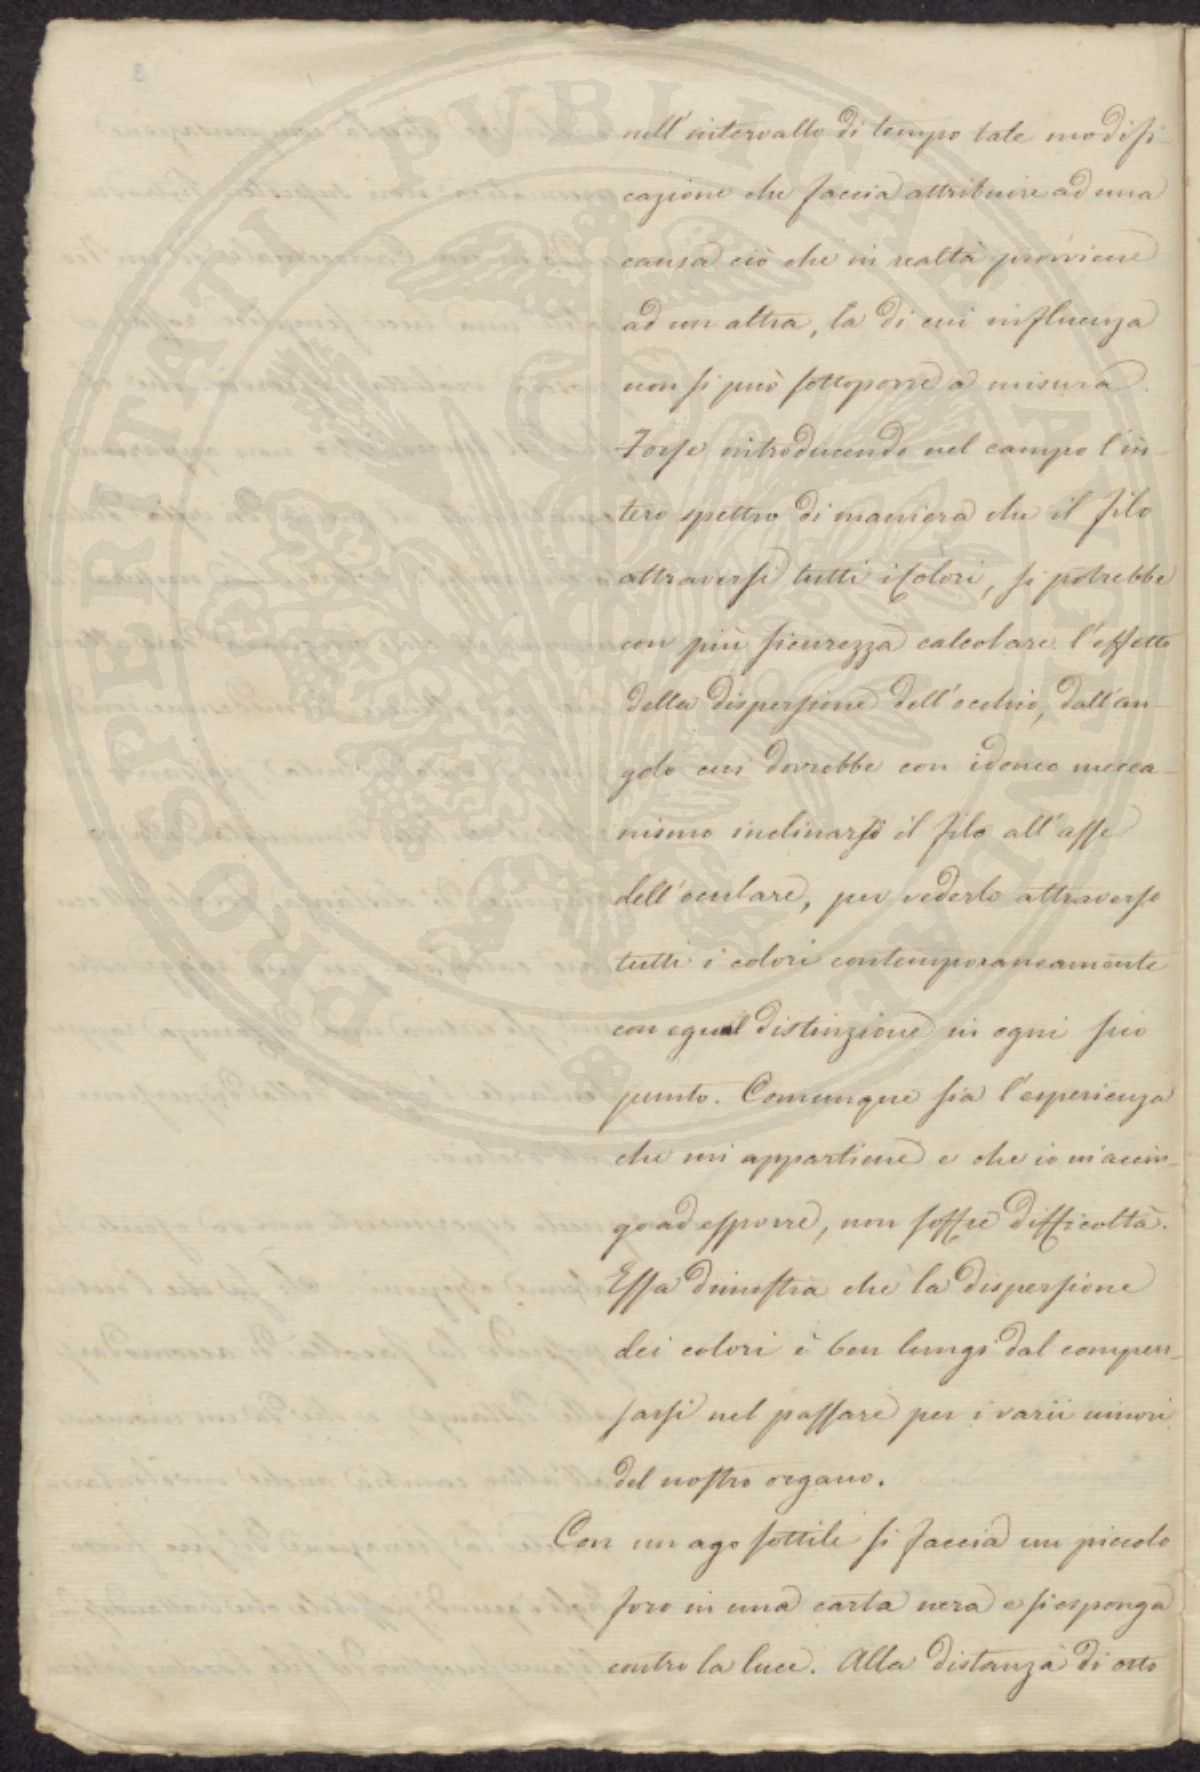 PROSPERITATI PVBLICAE AVGENDAE
nell'intervallo di tempo tale modifi-
cazione che faccia attribuire ad una
causa ciò che in realtà proviene
ad un altra, la di cui influenza
non si può sottoporre a misura.
Forse introducendo nel campo l'in-
tero spettro di maniera che il filo
attraversi tutti i colori, si potrebbe
con più sicurezza calcolare l'effetto
della dispersione dell'occhio, dall'an-
golo cui dovrebbe con idoneo mecca-
nismo inclinarsi il filo all'asse
dell'oculare, per vederlo attraverso
tutti i colori contemporaneamente
con egual distinzione in ogni suo
punto. Comunque sia l'esperienza
che mi appartiene e che io m'accin-
go ad esporre, non soffre difficoltà.
Essa dimostra che la dispersione
dei colori è ben lungi dal compen-
sarsi nel passare per i varii umori
del nostro organo.
Con un ago sottile si faccia un piccolo
foro in una carta nera e si esponga
contro la luce. Alla distanza di otto